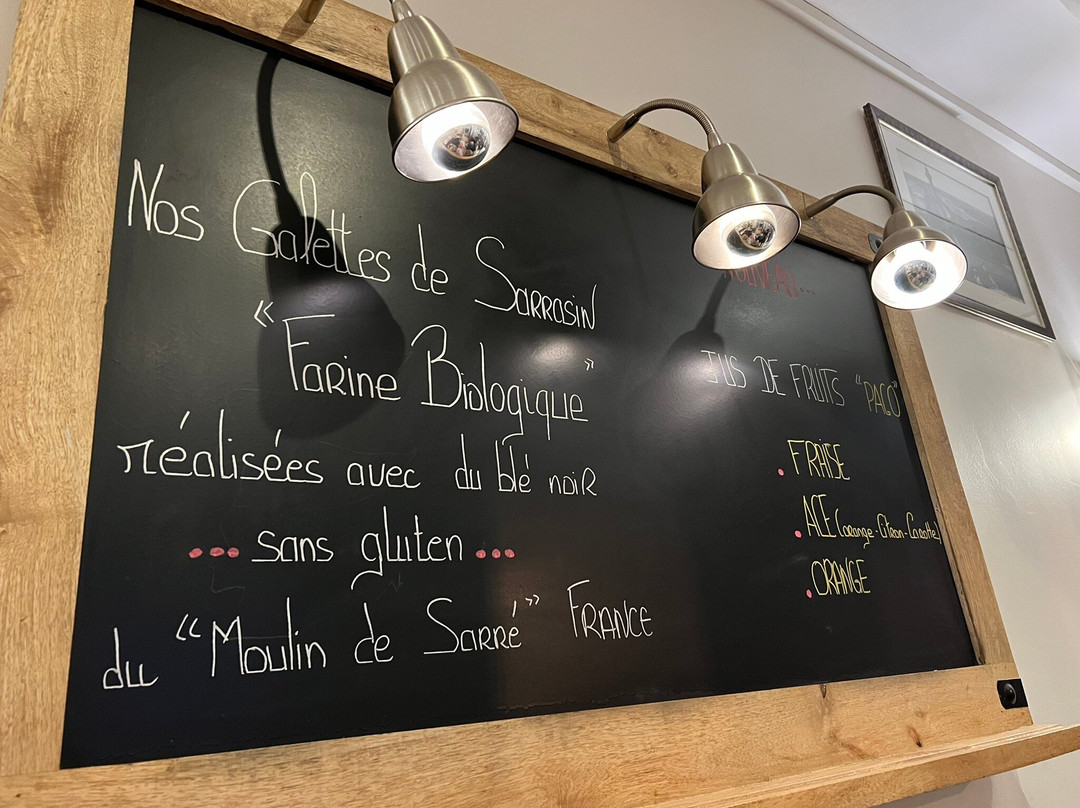 Nos Galettes de Sarrasin
"Farine Biologique"
réalisées avec du blé noir
... sans gluten ...
du "Moulin de Sarré" France
JUS DE FRUITS "PAGO"
. FRAISE
. ACE (orange-Citron-Carotte)
. ORANGE